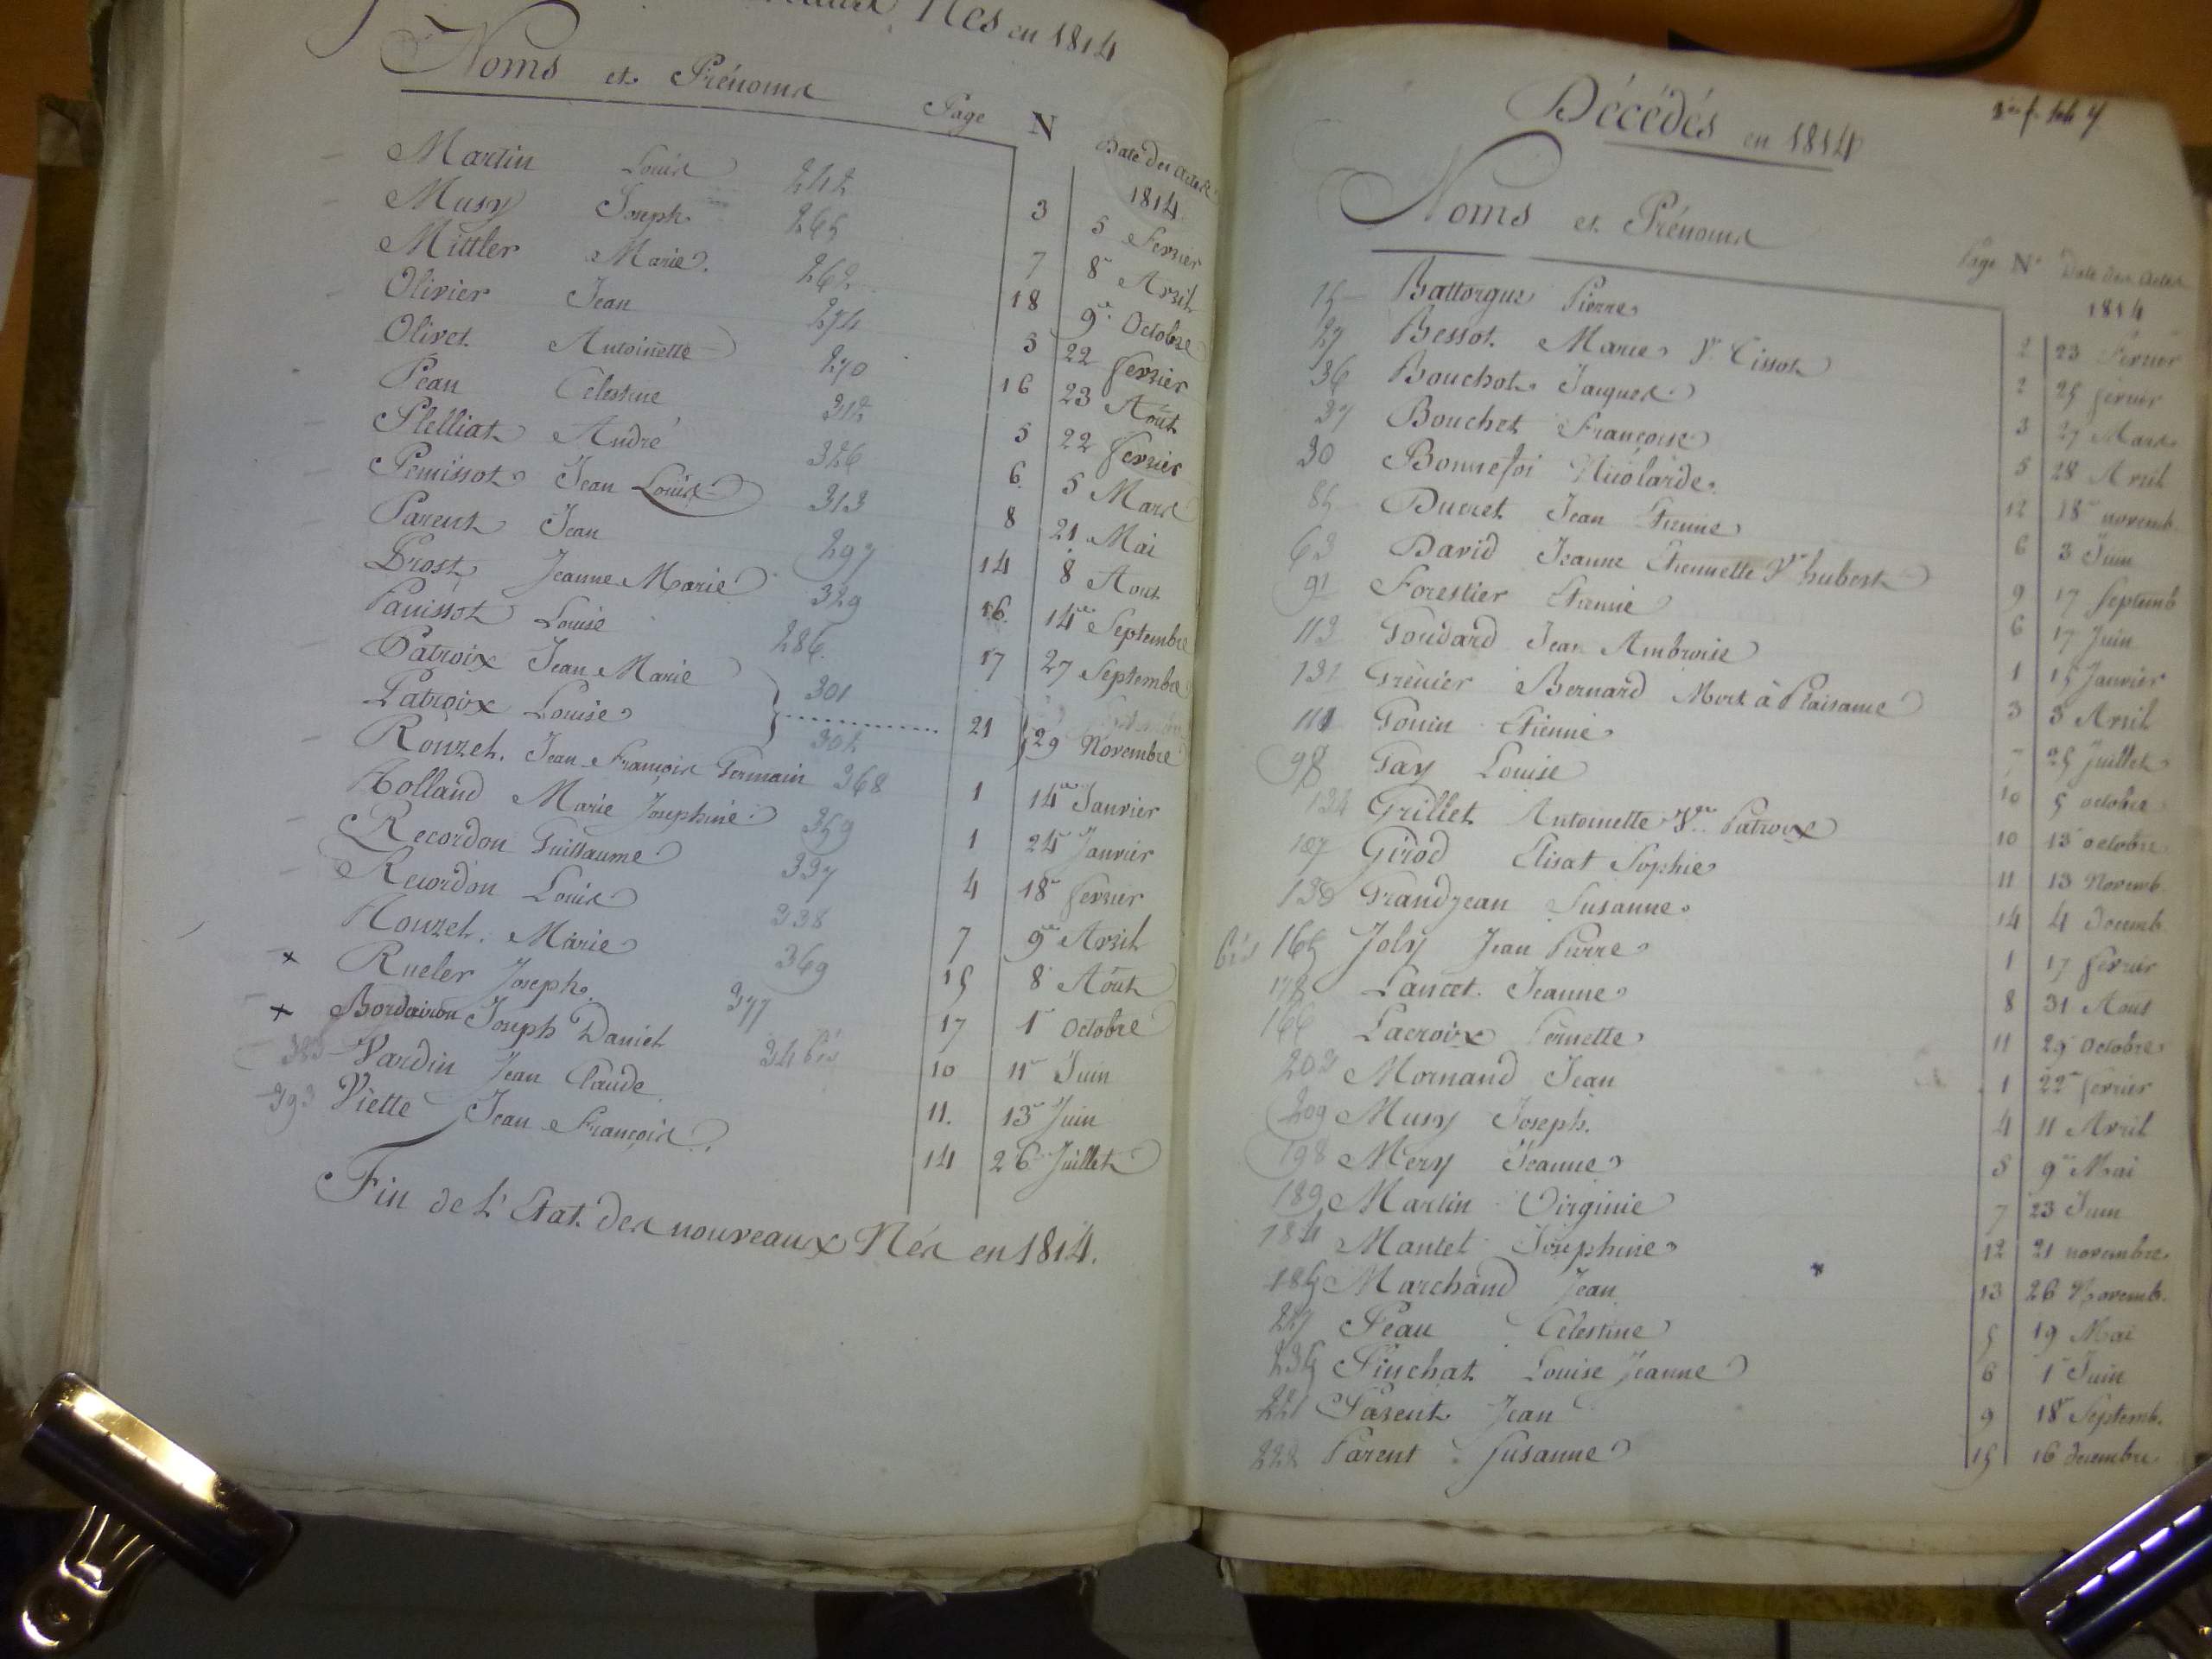 Nés en 1814
Noms et Prénoms Page N Date des Actes
1814
Martin Louis 242 3 5 Fevrier
Musy Joseph 265 7 8 Avril
Mittler Marie 262 18 9 Octobre
Olivier Jean 274 5 22 fevrier
Olivet Antoinette 270 16 23 Août
Pean Célestine 312 5 22 fevrier
Plelliat André 326 6 5 Mars
Pemissot Jean Louis 313 8 21 Mai
Parent Jean 297 14 8 Aout
Prost Jeanne Marie 329 16 14 Septembre
Panissot Louise 286 17 27 Septembre
Patroix Jean Marie 301
Patroix Louise 302 21 29 Novembre
Rouzet Jean François Germain 368 1 14 Janvier
Rolland Marie Josephine 359 1 24 Janvier
Recordon Guillaume 337 4 18 fevrier
Recordon Louis 338 7 9 Avril
Rouzet Marie 369 15 8 Août
x Rueler Joseph 377 17 1 Octobre
x Joseph Daniel 34 bis 10 11 Juin
383 Vardin Jean Claude 11 13 Juin
393 Viette Jean François 14 26 Juillet
Fin de l'Etat des nouveaux Nés en 1814.
Décédés en 1814
Noms et Prénoms Page N° Date des Actes
1814
15 Battorgue Pierre 2 23 Fevrier
27 Bessot Marie Ve Cissot 2 25 fevrier
36 Bouchot Jacques 3 27 Mars
37 Bouchet Françoise 5 28 Avril
30 Bonnefoi Nicolarde 12 18 novemb.
85 Ducret Jean Etienne 6 3 Juin
63 David Jeanne Etiennette Ve hubert 9 17 Septemb
91 Forestier Etienne 6 17 Juin
113 Goudard Jean Ambroise 1 15 Janvier
131 Grenier Bernard Mort à Plaisance 3 3 Avril
111 Gouin Etienne 7 25 Juillet
98 Gay Louise 10 5 octobre
134 Grillet Antoinette Ve Patroix 10 13 octobre
107 Girod Elisat Sophie 11 13 Novemb.
138 Grandjean Susanne 14 4 Decemb.
bis 165 Joly Jean Pierre 1 17 fevrier
178 Lancet Jeanne 8 31 Aout
166 Lacroix Pernette 11 29 Octobre
202 Mornand Jean 1 22 fevrier
209 Musy Joseph. 4 11 Avril
198 Mery Jeanne 5 9 Mai
189 Martin Virginie 7 23 Juin
184 Mantet Josephine 12 21 novembre
185 Marchand Jean 13 26 Novemb.
227 Peau Célestine 5 19 Mai
235 Pinchat Louise Jeanne 6 1 Juin
221 Parent Jean 9 18 Septemb.
222 Parent Susanne 15 16 decembre